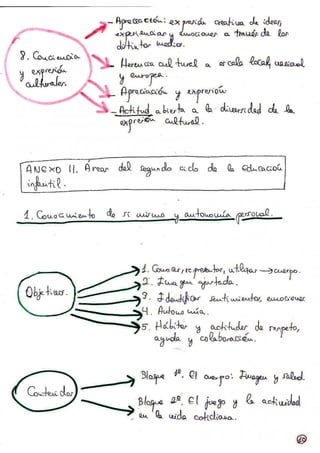 - Apreciación: expresión creativa de ideas,
experiencias y emociones a través de los
distintos medios.
8. Conciencia
y expresión
culturales.
- Herencia cultural a escala local, nacional
y europea.
- Apreciación y expresión
- Actitud abierta a la diversidad de la
expresión cultural.
ANEXO II. Áreas del segundo ciclo de la Educación
infantil.
1. Conocimiento de sí mismo y autonomía personal.
Objetivos.
1. Conocer, representar, utilizar → cuerpo.
2. Imagen ajustada.
3. Identificar sentimientos, emociones
4. Autonomía.
5. Hábitos y actitudes de respeto,
ayuda y colaboración.
Contenidos
Bloque 1º. El cuerpo: Imagen y salud.
Bloque 2º. El juego y la actividad
en la vida cotidiana.